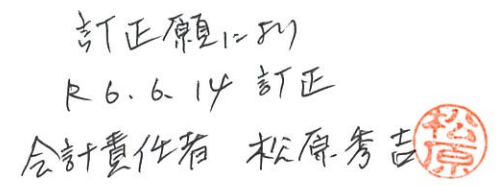 訂正願により
R6.6.14 訂正
会計責任者 松原秀吉
松原